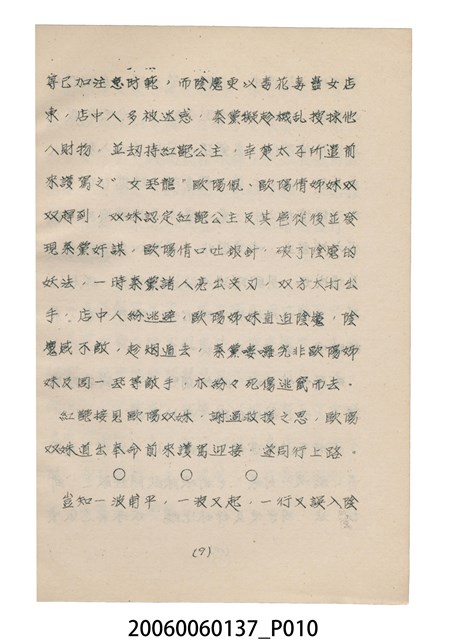 等已加注意防範，而陰魔更以毒花毒晝女店
東，店中人多被迷惑，秦黨擬趁機乱搜掠他
人財物，並刼持紅艷公主，幸楚太子所遣前
來護駕之"女飛龍"歐陽佩、歐陽倩姊妹双
双趕到，双妹認定紅艷公主及其他從後並發
現秦黨奸謀，歐陽倩口吐銀針，破了陰魔的
妖法，一時秦黨諸人亮出夾刃，双方大打出
手，店中人紛逃避，歐陽姊妹直迫陰魔，陰
魔感不敵，趁烟遁去，秦黨婁羅究非歐陽姊
妹及同一飛等敵手，亦紛々死傷逃竄而去。
紅艷接見歐陽双妹，謝過救援之恩，歐陽
双妹道出奉命前來護駕迎接，遂同行上路。
○ ○ ○
豈知一波甫平，一波又起，一行又誤入陰
(9)
20060060137_P010